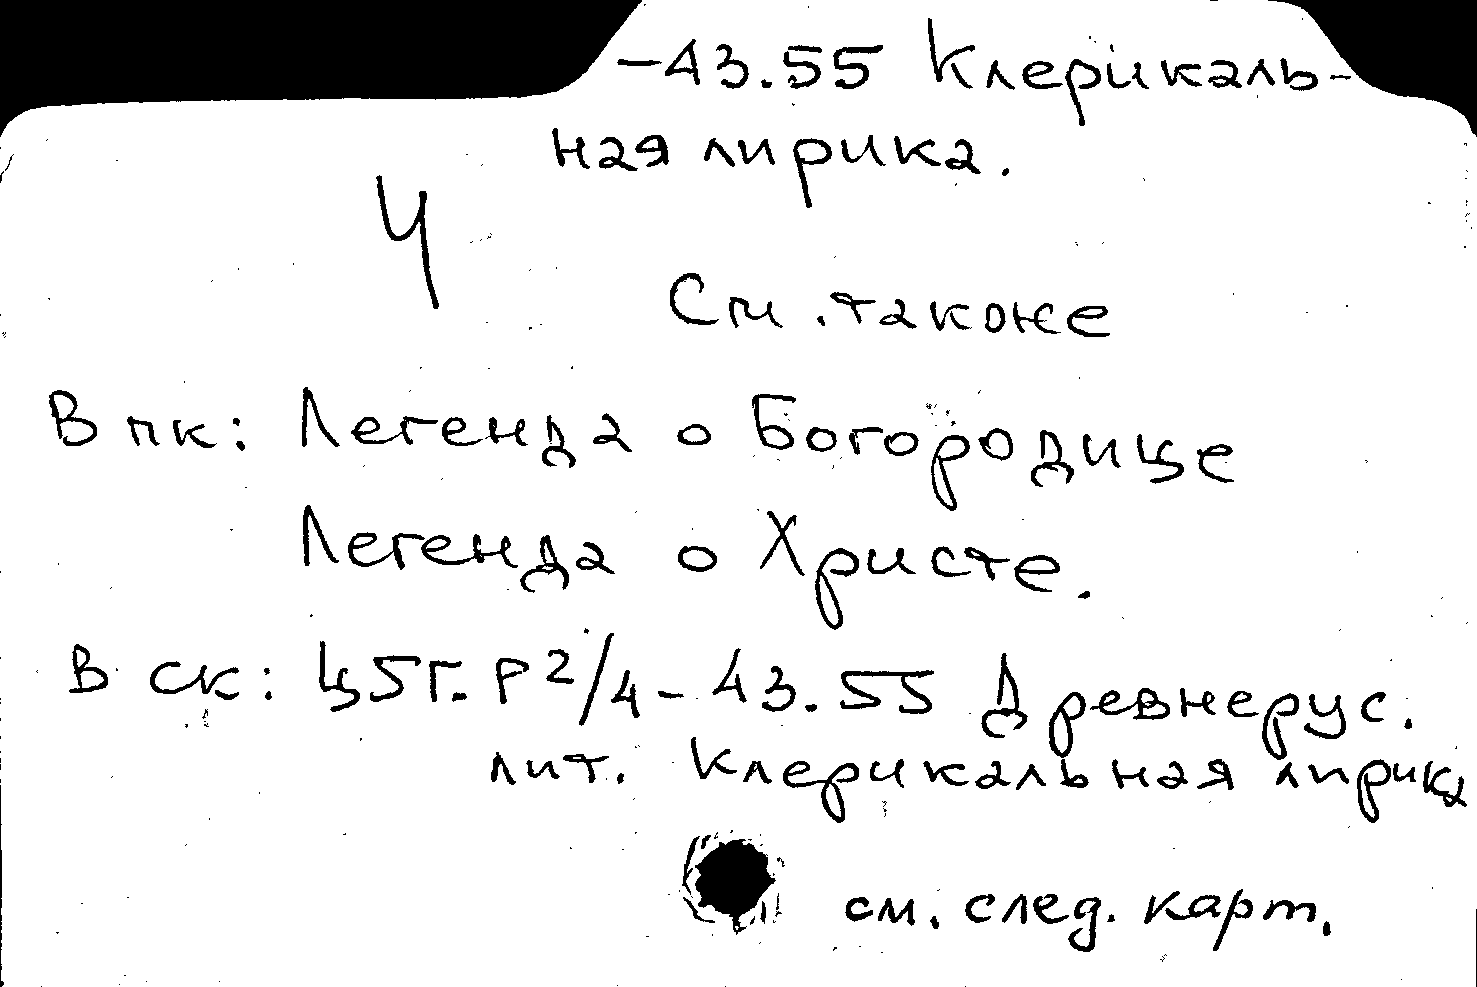 -43.55 Клерикаль-
ная лирика.
Ч
См. также
В ПК: Легенда о Богородице
Легенда о Христе.
В СК: Ц5Г.Р2/4-43.55 Древнерус.
лит. Клерикальная лирика
см. след. карт.